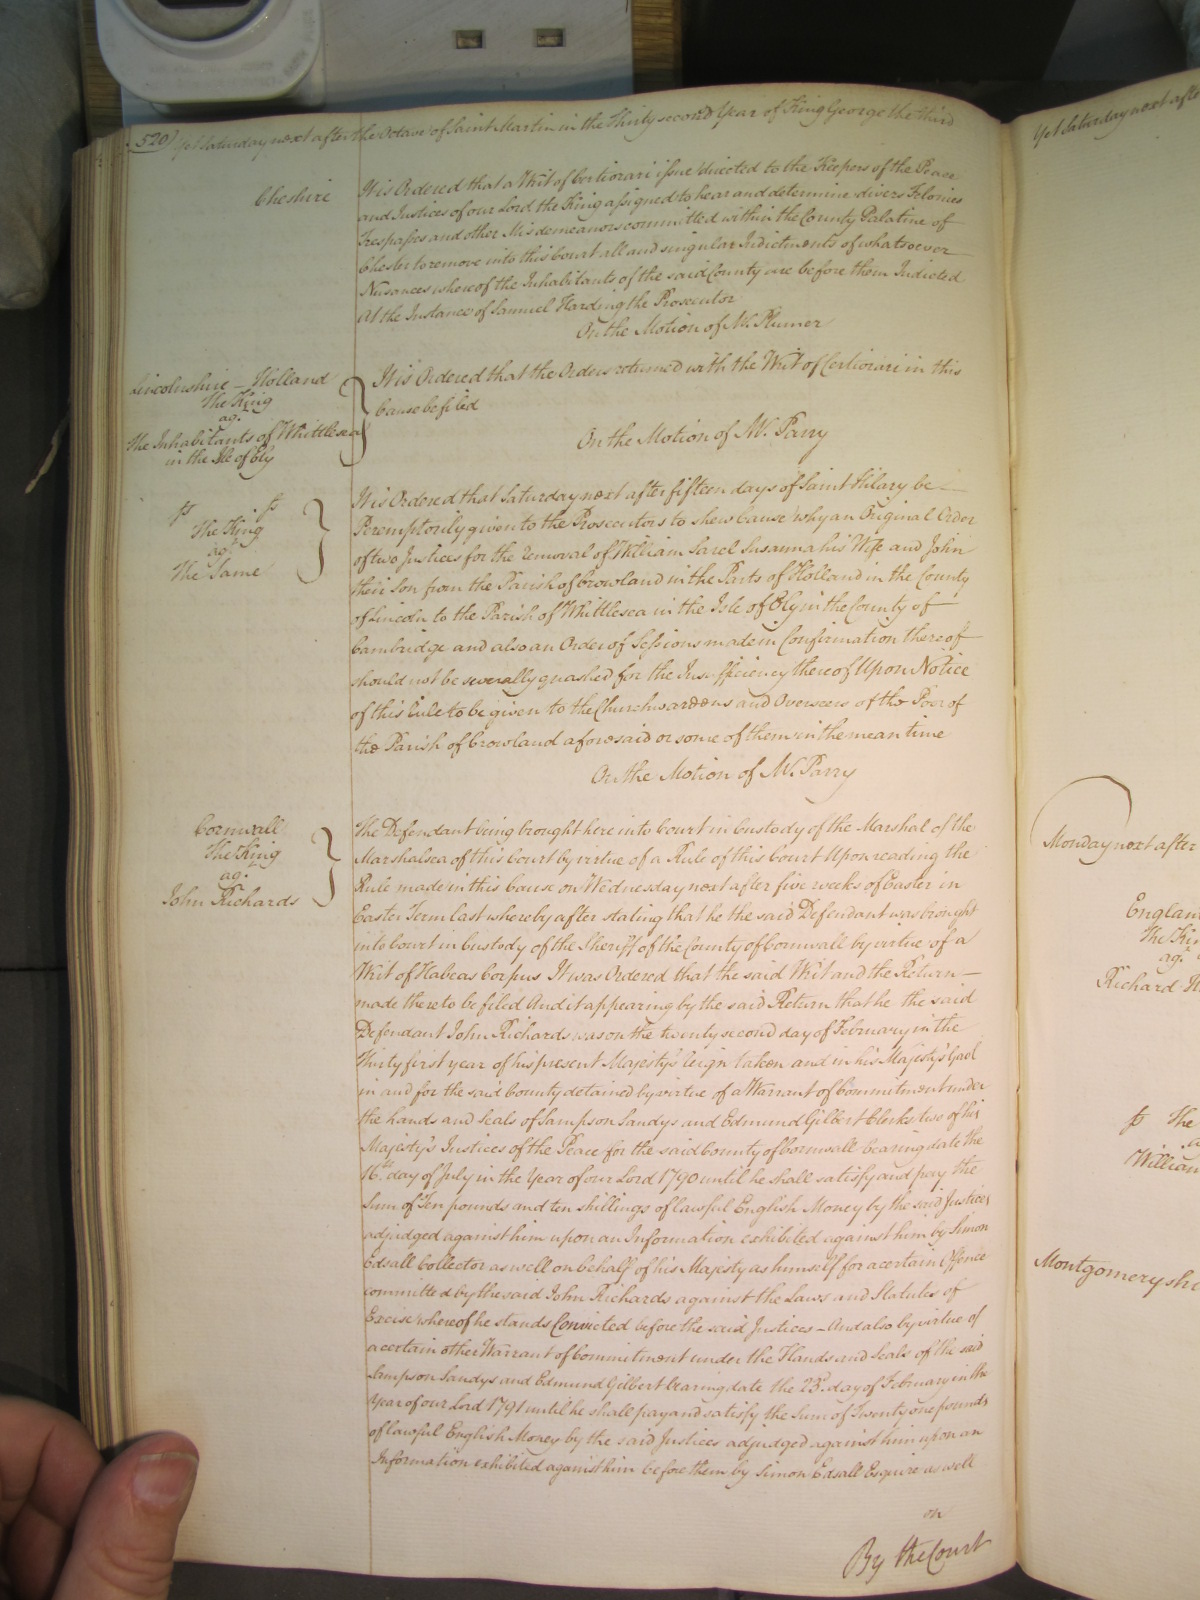 520) Yet Saturday next after the Octave of Saint Martin in the Thirty second Year of King George the third
Cheshire
It is Ordered that a Writ of Certiorari issue directed to the Keepers of the Peace
and Justices of our Lord the King assigned to hear and determine divers Felonies
Trespasses and other Misdemeanors committed within the County Palatine of
Chester to remove into this Court all and singular Indictments of whatsoever
Nusances whereof the Inhabitants of the said County are before them Indicted
At the Instance of Samuel Harding the Prosecutor
On the Motion of Mr. Plumer
Lincolnshire – Holland
The King
agt.
The Inhabitants of Whittlesea
in the Isle of Ely
It is Ordered that the Orders returned with the Writ of Certiorari in this
Cause be filed
On the Motion of Mr. Parry
The King
agt.
The Same
It is Ordered that Saturday next after fifteen days of Saint Hilary be
Peremptorily given to the Prosecutors to shew Cause why an Original Order
of two Justices for the removal of William Sarel Susanna his Wife and John
their Son from the Parish of Crowland in the Parts of Holland in the County
of Lincoln to the Parish of Whittlesea in the Isle of Ely in the County of
Cambridge and also an Order of Sessions made in Confirmation thereof
should not be severally quashed for the Insufficiency thereof Upon Notice
of this Rule to be given to the Churchwardens and Overseers of the Poor of
the Parish of Crowland aforesaid or some of them in the mean time
On the Motion of Mr. Parry
Cornwall
The King
agt.
John Richards
The Defendant being brought here into Court in Custody of the Marshal of the
Marshalsea of this Court by virtue of a Rule of this Court Upon reading the
Rule made in this Cause on Wednesday next after five weeks of Easter in
Easter Term last whereby after stating that he the said Defendant was brought
into Court in Custody of the Sheriff of the County of Cornwall by virtue of a
Writ of Habeas Corpus It was Ordered that the said Writ and the Return
made thereto be filed And it appearing by the said Return that he the said
Defendant John Richards was on the twenty second day of February in the
Thirty first year of his present Majesty's Reign taken and in his Majesty's Gaol
in and for the said County detained by virtue of a Warrant of Commitment under
the hands and Seals of Sampson Sandys and Edmund Gilbert Clerks two of his
Majesty's Justices of the Peace for the said County of Cornwall bearing date the
16th. day of July in the Year of our Lord 1790 until he shall satisfy and pay the
Sum of Ten pounds and ten shillings of lawful English Money by the said Justices
adjudged against him upon an Information exhibited against him by Simon
Edsall Collector as well on behalf of his Majesty as himself for a certain Offence
committed by the said John Richards against the Laws and Statutes of
Excise whereof he stands Convicted before the said Justices – And also by virtue of
a certain other Warrant of Commitment under the Hands and Seals of the said
Sampson Sandys and Edmund Gilbert bearing date the 23d. day of February in the
Year of our Lord 1791 until he shall pay and satisfy the Sum of Twenty one pounds
of lawful English Money by the said Justices adjudged against him upon an
Information exhibited against him before them by Simon Edsall Esquire as well
on
By the Court
Yet Saturday next afte
Monday next after
England
The Kin
agt.
Richard
The
William
Montgomeryshi